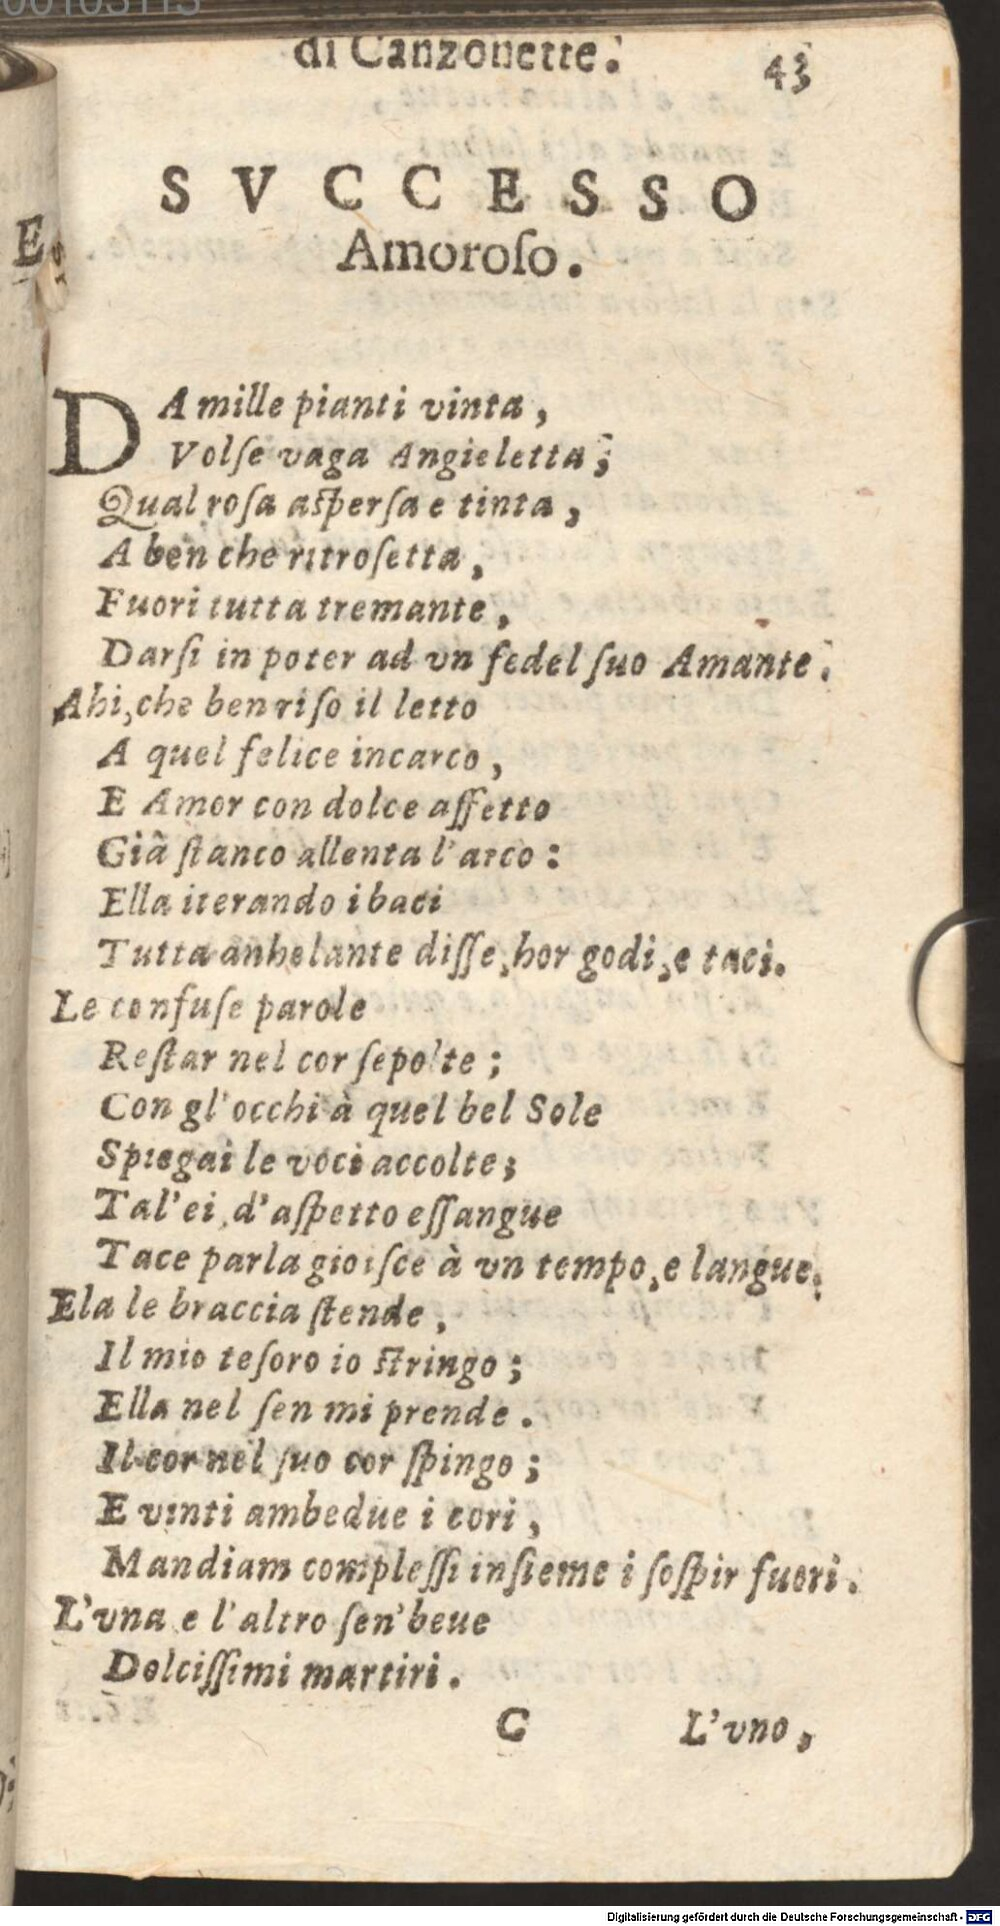 di Canzonette. 43
SVCCESSO
Amoroſo.
DA mille pianti vinta,
Volſe vaga Angieletta;
Qual roſa aſperſa e tinta,
A ben che ritroſetta,
Fuori tutta tremante,
Darſi in poter ad vn fedel ſuo Amante.
Ahi, che ben riſo il letto
A quel felice incarco,
E Amor con dolce affetto
Già ſtanco allenta l'arco:
Ella iterando i baci
Tutta anhelante diſſe, hor godi, e taci.
Le confuſe parole
Reſtar nel cor ſepolte;
Con gl'occhi à quel bel Sole
Spiegai le voci accolte;
Tal'ei, d'aſpetto eſſangue
Tace parla gioiſce à vn tempo, e langue.
Ela le braccia ſtende,
Il mio teſoro io ſtringo;
Ella nel ſen mi prende.
Il cor nel ſuo cor ſpingo;
E vinti ambedue i cori,
Mandiam compleſſi inſieme i ſoſpir fuori.
L'vna e l'altro ſen'beue
Dolciſſimi martiri.
C L'vno,
Digitalisierung gefördert durch die Deutsche Forschungsgemeinschaft - DFG